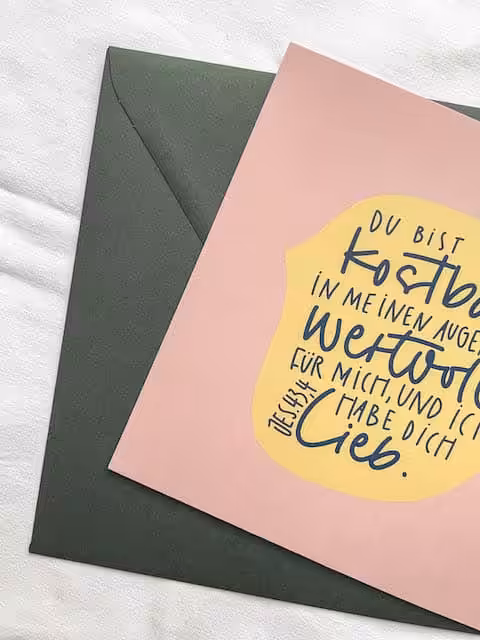 DU BIST
kostba
IN MEINEN AUGE
wertvol
FÜR MICH, UND IC
HABE DICH
lieb.
JES.43,4